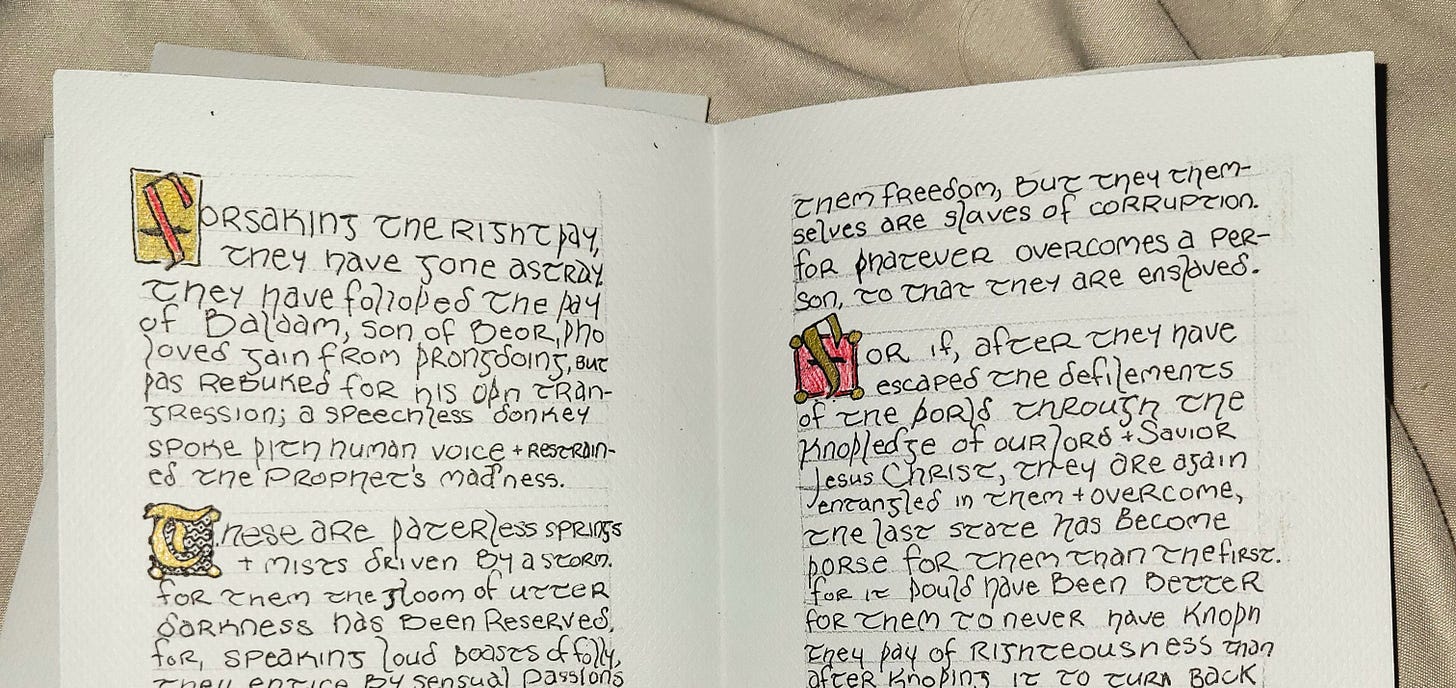 Forsaking the right ƿay,
they have gone astray.
They have folloƿed the ƿay
of Balaam, son of Beor, ƿho
loved gain from ƿrongdoing, but
ƿas rebuked for his oƿn tran-
gression; a speechless donkey
spoke ƿith human voice + restrain-
ed the Prophet's madness.
These are ƿaterless springs
+ mists driven by a storm.
for them the gloom of utter
darkness has been reserved,
for, speaking loud boasts of folly,
they entice by sensual passions
them freedom, but they them-
selves are slaves of corruption.
for ƿhatever overcomes a per-
son, to that they are enslaved.
For if, after they have
escaped the defilements
of the ƿorld through the
knoƿledge of our lord + Savior
Jesus Christ, they are again
entangled in them + overcome,
the last state has become
ƿorse for them than the first.
for it ƿould have been better
for them to never have knoƿn
they ƿay of righteousness than
after knoƿing it to turn back